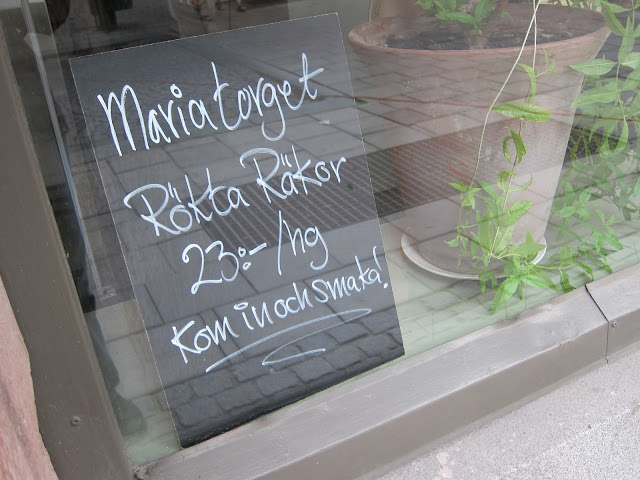 Mariatorget
Rökta Räkor
23:-/hg
Kom in och smaka!